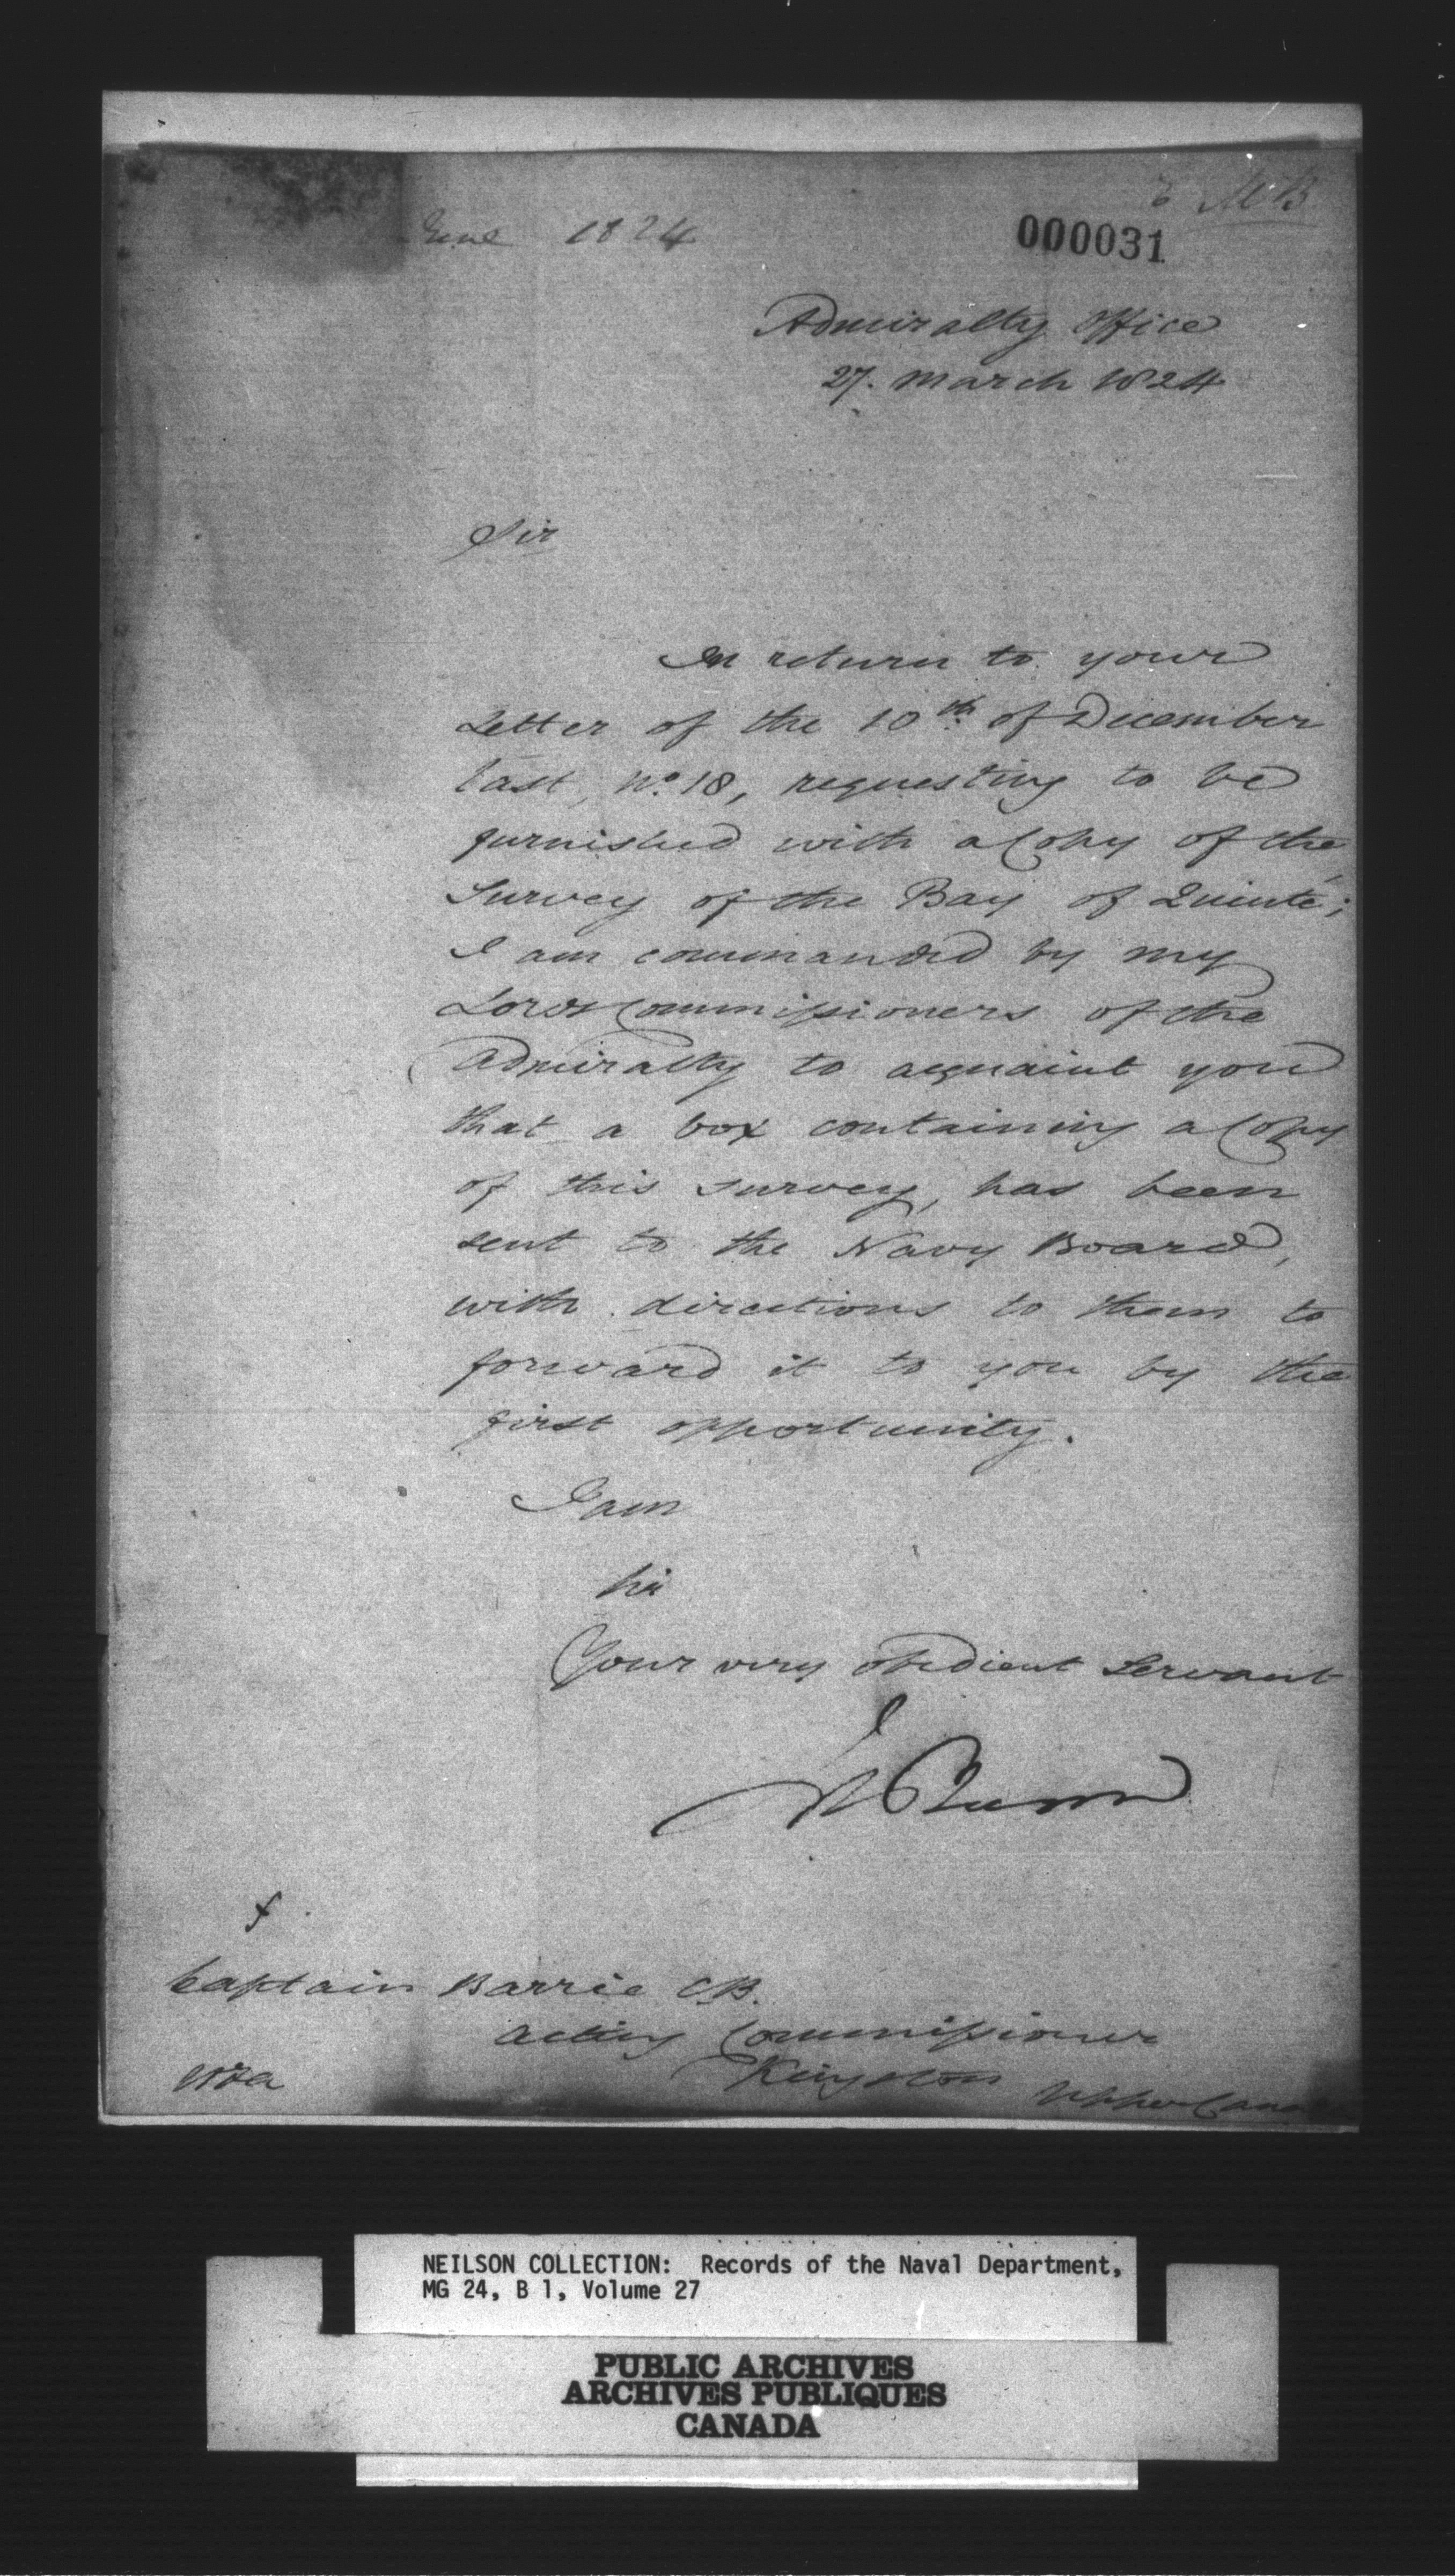 June 1824
000031
Admiralty Office
27. March 1824
Sir
In return to your
Letter of the 10th. of December
last, No. 18, requesting to be
furnished with a Copy of the
Survey of the Bay of Quinté;
I am commanded by my
Lords Commissioners of the
Admiralty to acquaint you
that a box containing a Copy
of this survey, has been
sent to the Navy Board,
with directions to them to
forward it to you by the
first opportunity.
I am
Sir
Your very obedient Servant
Captain Barrie CB.
Acting Commissioner
Kingston Upper Canada
NEILSON COLLECTION: Records of the Naval Department,
MG 24, B 1, Volume 27
PUBLIC ARCHIVES
ARCHIVES PUBLIQUES
CANADA